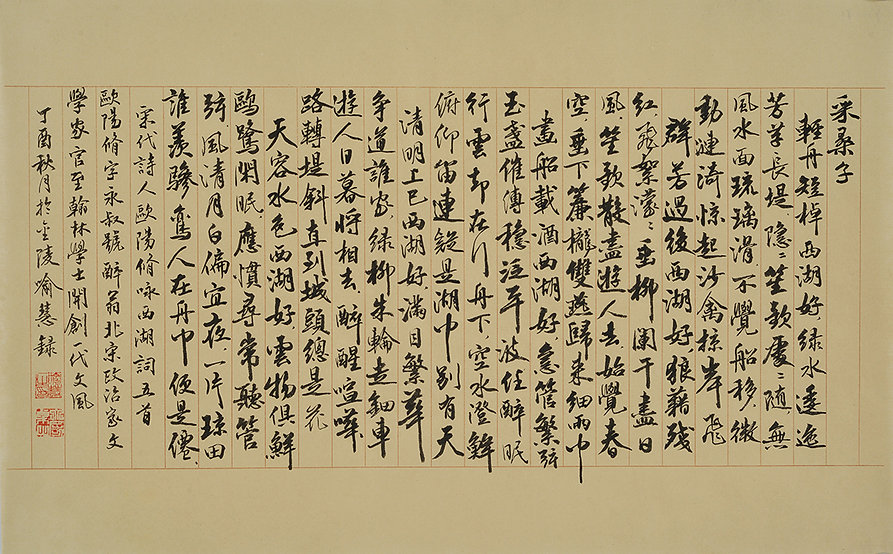 采桑子
輕舟短棹西湖好綠水逶迤
芳草長堤隱〻笙歌處〻隨無
風水面琉璃滑不覺船移微
動漣漪惊起沙禽掠岸飛
群芳過後西湖好狼藉殘
紅飛絮濛〻垂柳闌干盡日
風笙歌散盡遊人去始覺春
空垂下簾櫳雙燕歸來細雨中
畫船載酒西湖好急管繁弦
玉盞催傳穩泛平波任醉眠
行雲却在行舟下空水澄鮮
俯仰留連疑是湖中別有天
清明上巳西湖好滿目繁華
爭道誰家綠柳朱輪走鈿車
遊人日暮將相去醉醒喧嘩
路轉堤斜直到城頭總是花
天容水色西湖好雲物俱鮮
鷗鷺閑眠應慣尋常聽管
弦風清月白偏宜夜一片琼田
誰羨驂鸞人在舟中便是僊
宋代詩人歐陽脩咏西湖詞五首
歐陽脩字永叔號醉翁北宋政治家文
學家官至翰林學士開創一代文風
丁酉秋月於金陵喻慧錄